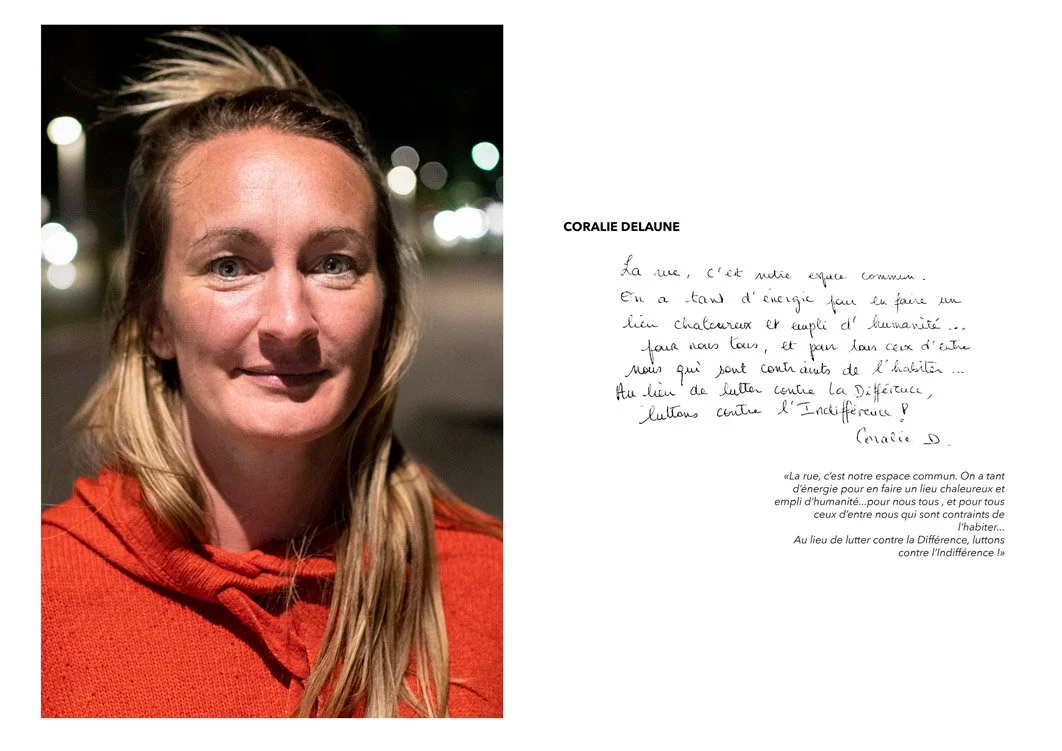 CORALIE DELAUNE
La rue, c'est notre espace commun.
On a tant d'énergie pour en faire un
lieu chaleureux et empli d'humanité ...
pour nous tous, et pour tous ceux d'entre
nous qui sont contraints de l'habiter ...
Au lieu de lutter contre la Différence,
luttons contre l'Indifférence !
Coralie D.
«La rue, c'est notre espace commun. On a tant
d'énergie pour en faire un lieu chaleureux et
empli d'humanité...pour nous tous , et pour tous
ceux d'entre nous qui sont contraints de
l'habiter...
Au lieu de lutter contre la Différence, luttons
contre l'Indifférence !»